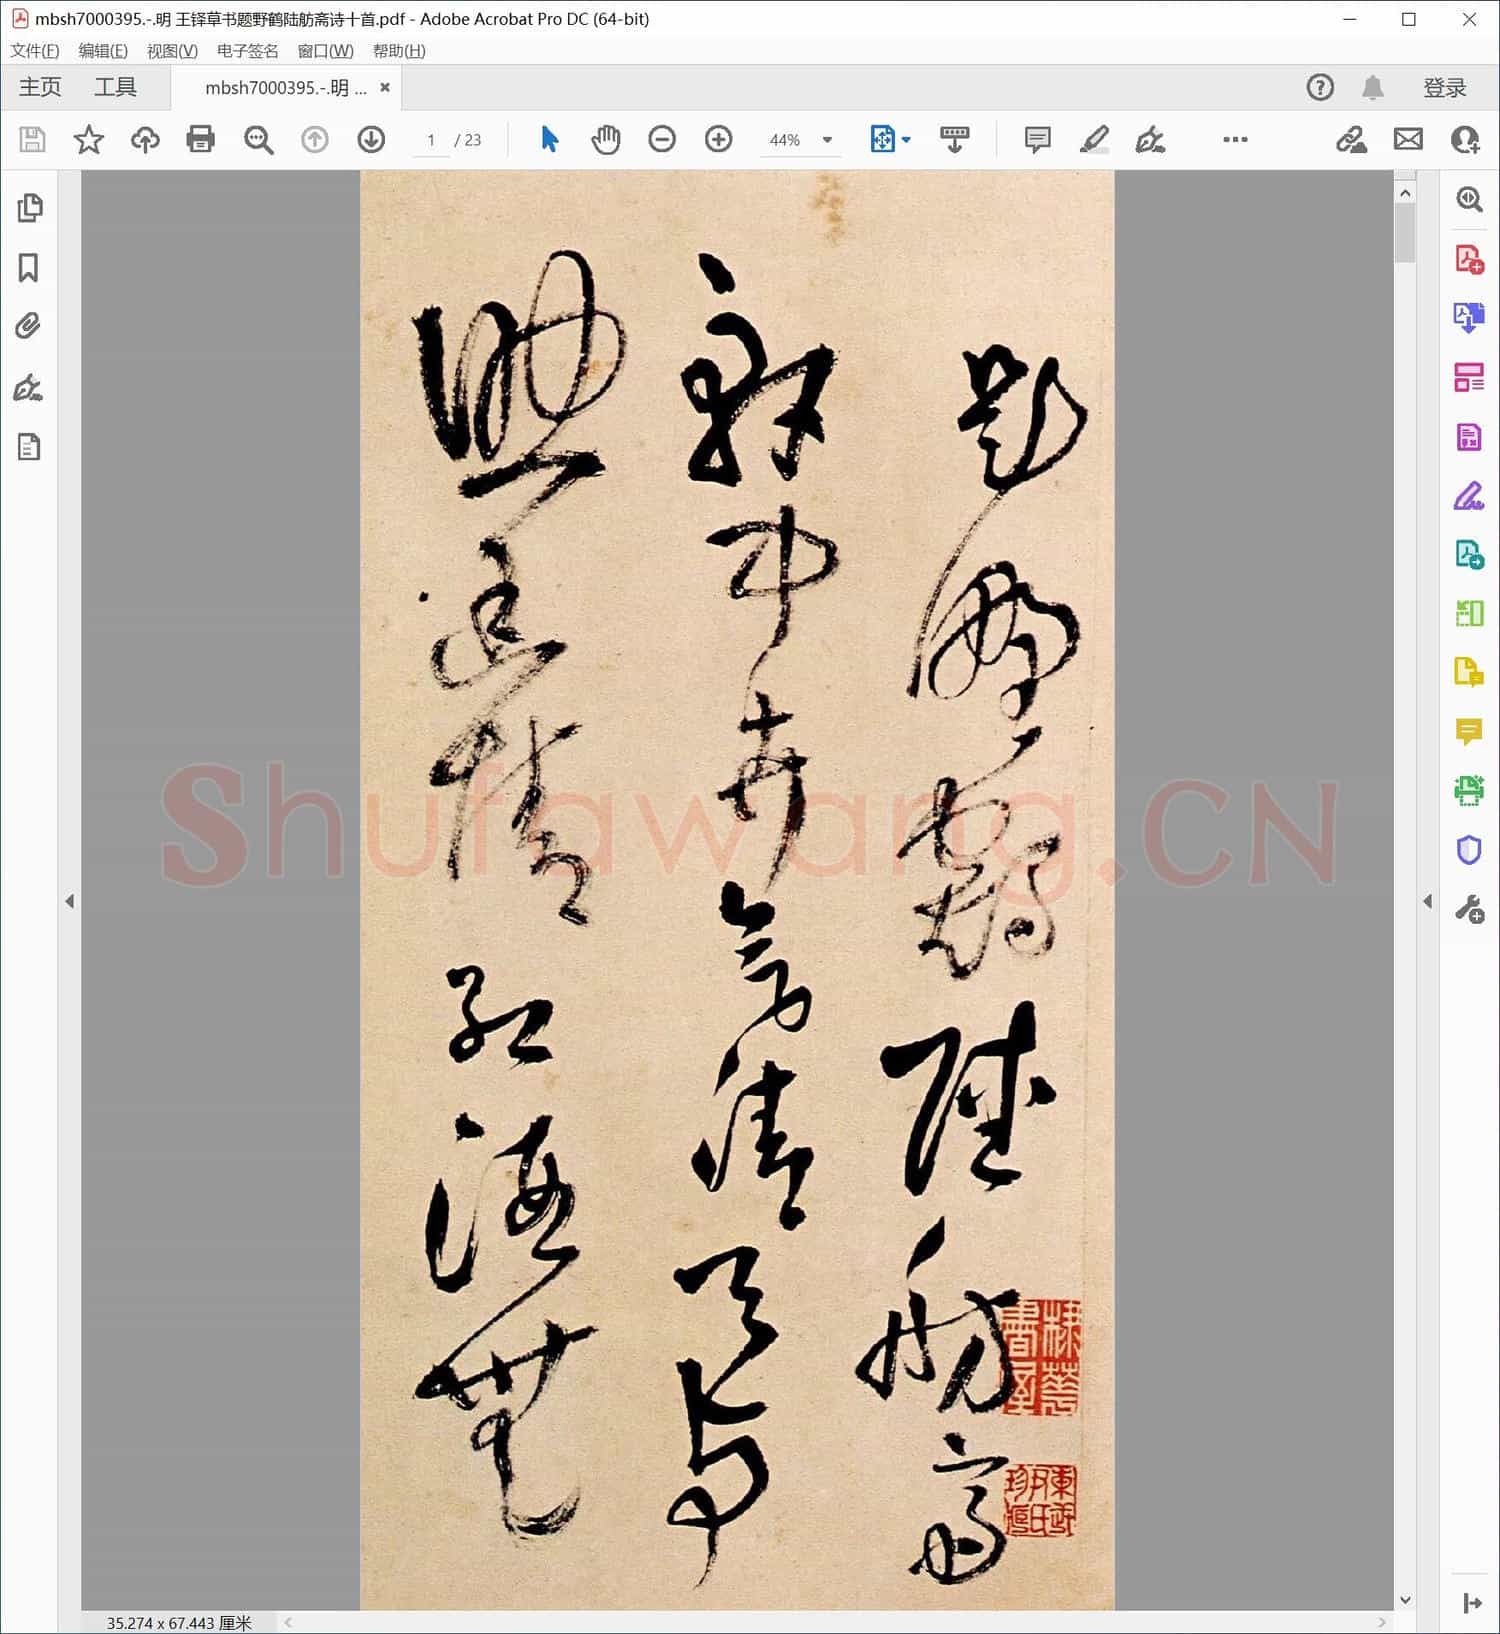 mbsh7000395.-.明 王铎草书题野鹤陆舫斋诗十首.pdf - Adobe Acrobat Pro DC (64-bit)
文件(F) 编辑(E) 视图(V) 电子签名 窗口(W) 帮助(H)
主页 工具 mbsh7000395.-.明 ... 登录
1 / 23 44%
题野鹤陆舫斋
中奇清天
情 红海无
棣华书屋
Shufawang.CN
35.274 x 67.443 厘米